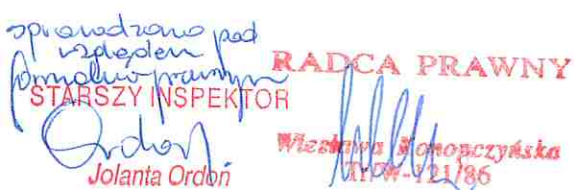 sprawdzono pod
względem
formalno-prawnym
STARSZY INSPEKTOR
Jolanta Ordoń
RADCA PRAWNY
Wiesława Konopczyńska